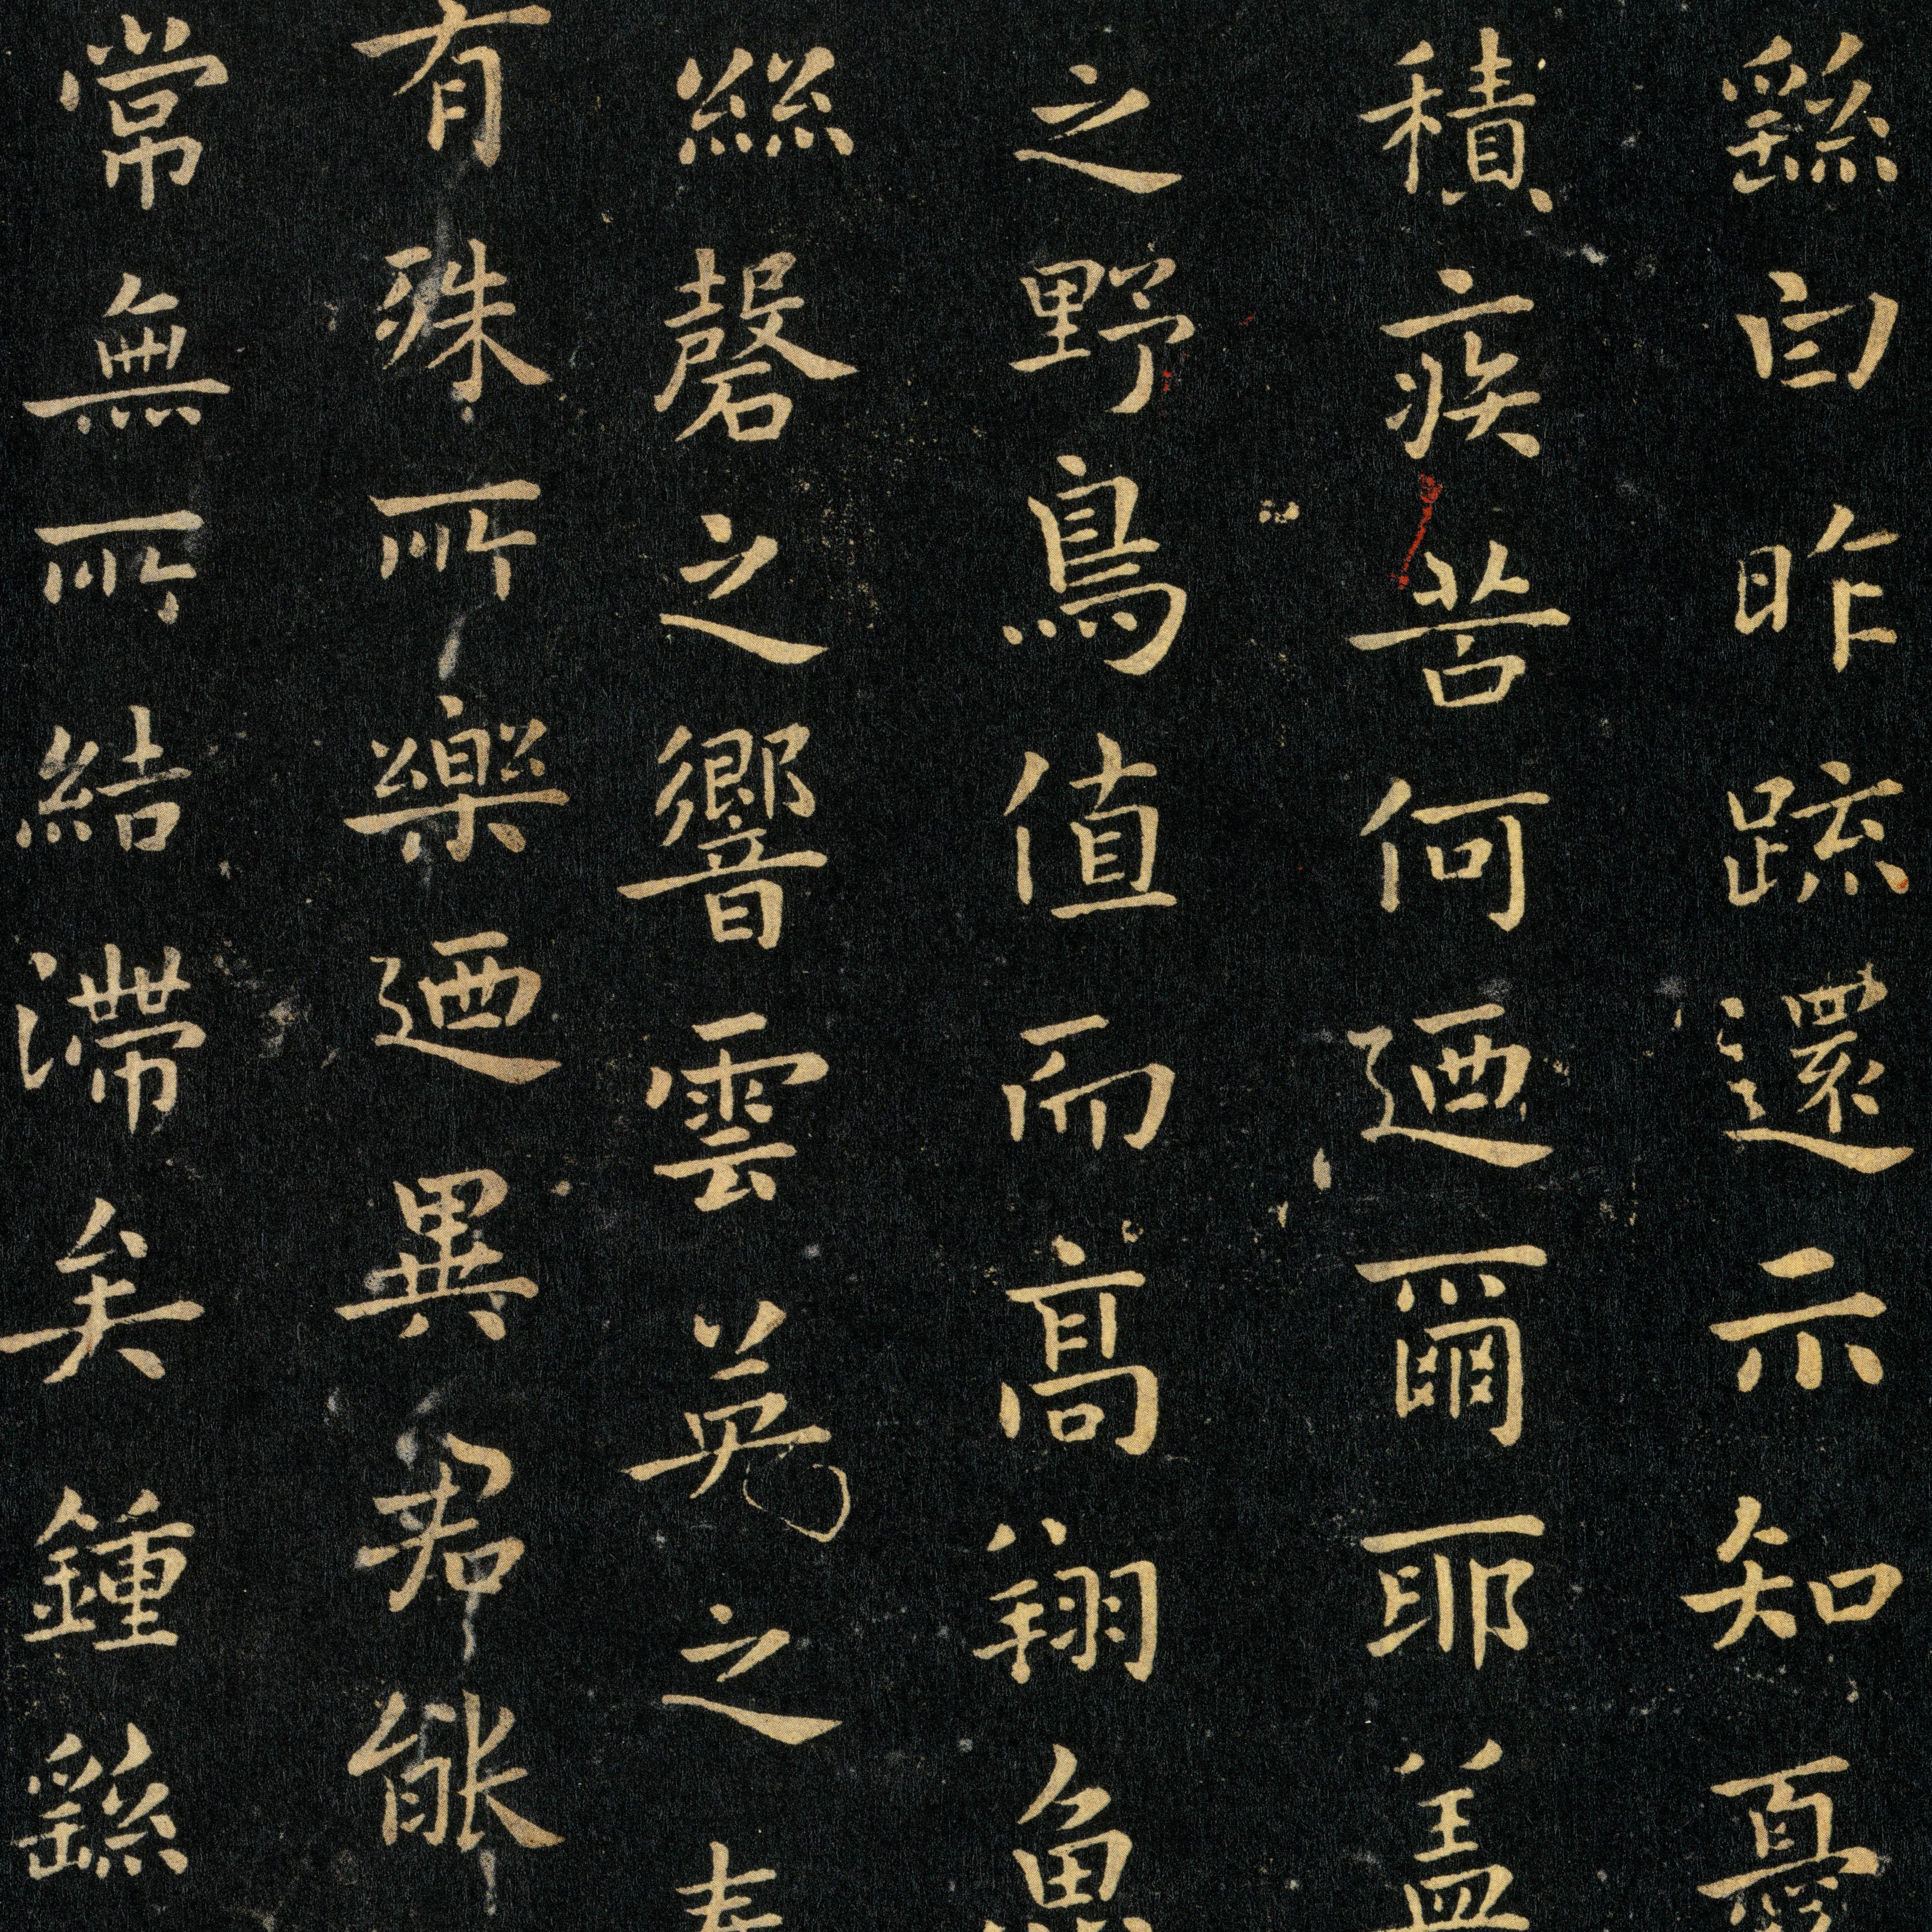 繇白昨疏還示知憂
積疾苦何迺爾耶盖
之野鳥值而高翔魚
絲磬之響雲英之奏
有殊所樂迺異君能
常無所結滯矣鍾繇